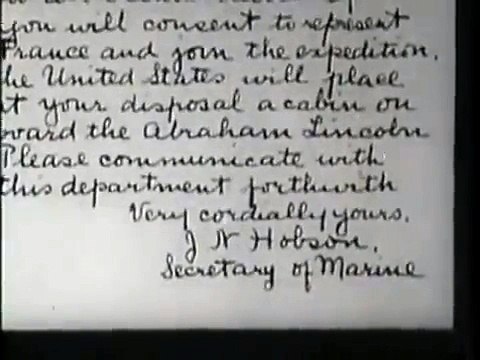 you will consent to represent
France and join the expedition,
he United States will place
t your disposal a cabin on
oard the Abraham Lincoln
Please communicate with
this department forthwith
Very cordially yours,
J N Hobson,
Secretary of Marine